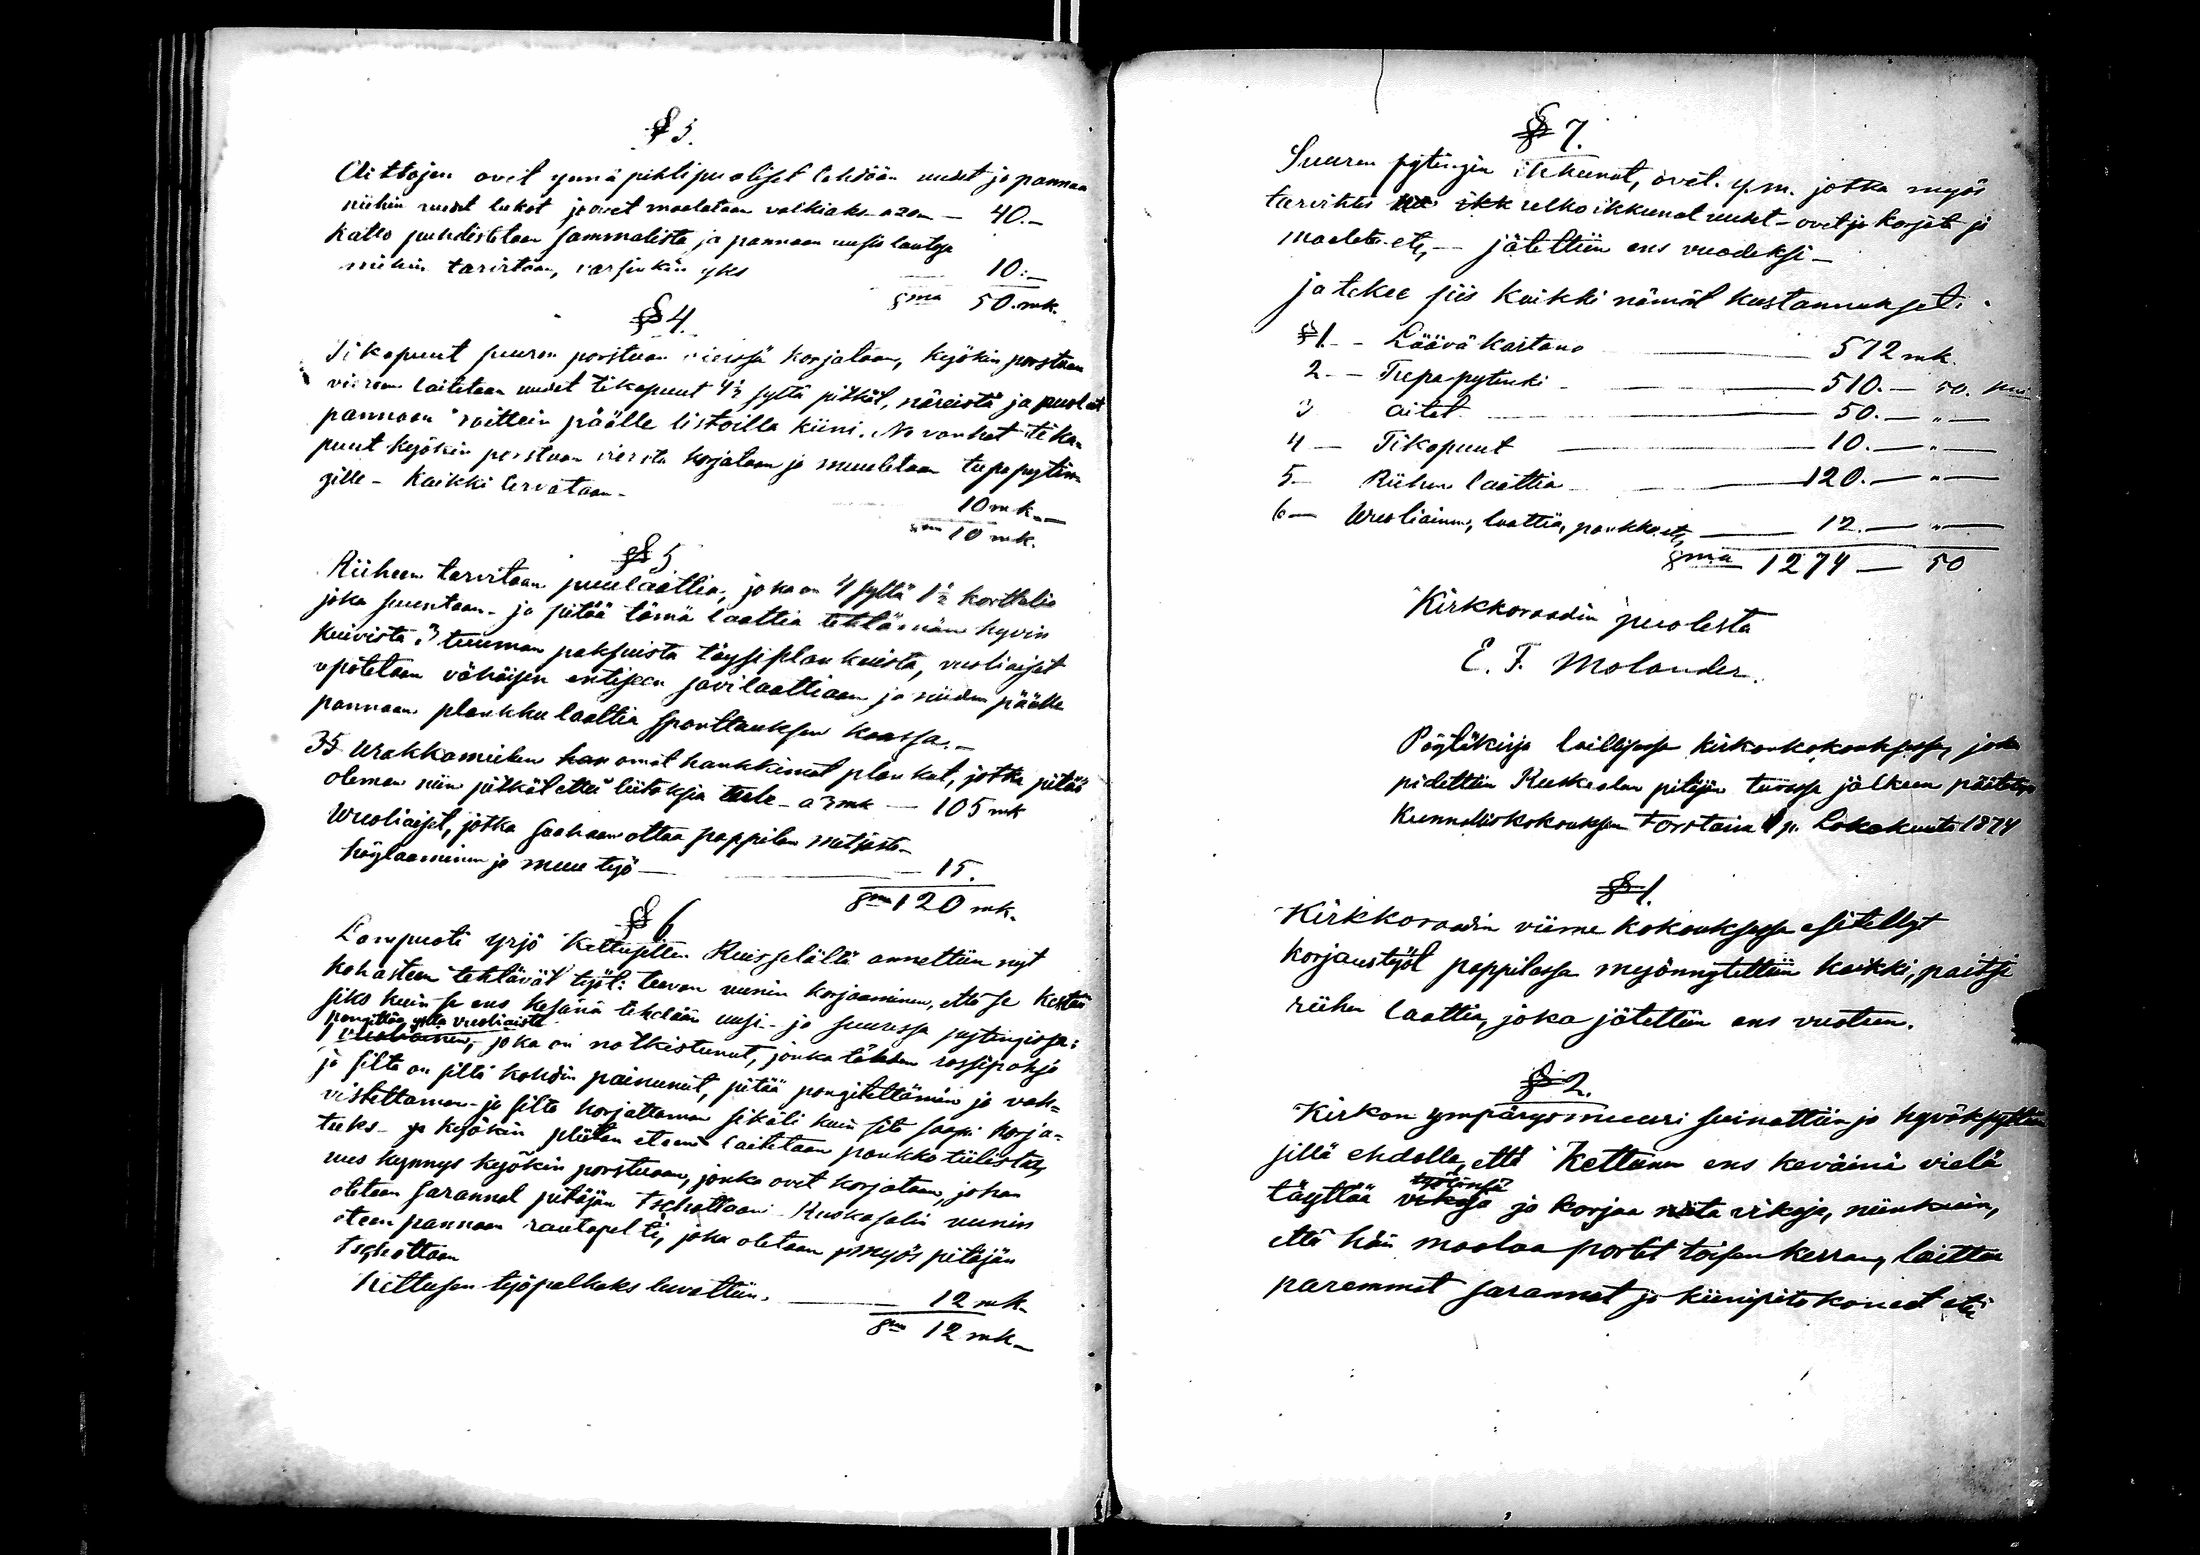 § 3.
Aittojen ovet ynnä pihtipuoliset tehdään uudet ja pannaan
niihin uudet lukot ja ovet maalataan valkiaks a 20 m — 40.—
Katto puhdistetaan sammalista ja pannaan uusia lautoja
mihin tarvitaan, varsinkin yks — 10.—
Sma 50. mk.
§ 4.
Tikapuut suuren porstuan vieressä korjataan, kyökin porstuan
viereen laitetaan uudet tikapuut 4½ syltä pitkät, näreistä ja puolat
pannaan päälle listoilla kiini. Ne vanhat tika-
puut kyökin porstuan vierestä korjataan ja muutetaan tupapytin-
gille - Kaikki tervataan -
10 mk. —
Sma 10 mk.
§ 5
Riiheen tarvitaan puulaattia, joka on 4 syltä 1½ korttelia
joka suuntaan - ja pitää tämä laattia tehtämän hyvin
kuivista 3 tuuman paksuista täysiplankuista, vuoliaiset
upotetaan vähäisen entiseen savilaattiaan ja niiden päälle
pannaan plankku laattia sponttauksen kanssa. —
35 Urakkamiehen omat hankkimat plankut, jotka pitää
oleman niin pitkät ettei liitoksia tule - a 3 mk — 105 mk
Wuoliaiset, jotka saahaan ottaa pappilan metsästä -
höylääminen ja muu työ — 15.
Sma 120 mk.
§ 6
Lampuoti Yrjö Kettuselle Ruisselältä annettiin nyt
kohasteen tehtävät työt: tuvan uunin korjaaminen, että se kestää
siks kuin se ens kesänä tehdään uusi - ja suuressa pytingissä:
pongittaa yltä vuoliaista
1 vuoliainen, joka on notkistunut, jonka tähden rossipohja
ja silta on siltä kohdin painunut, pitää pongitettämän ja vah-
vistettaman - ja silta korjattaman sikäli kuin sitä saapi korja-
tuks - ja kyökin pliitan eteen laitetaan pankko tiilistä,
uus kynnys kyökin porstuaan, jonka ovet korjataan, johan
otetaan sarannat pitäjän tschottaan. Ruokasalin uunin
eteen pannaan rautapelti, joka otetaan myös pitäjän
tschottaan
Kettusen työpalkaks luvattiin. — 12 mk.
Sma 12 mk —
§ 7.
Suuren pytingin ikkunat, ovet. y.m. jotka myös
tarvihtis ikk ulko ikkunat uudet - ovet ja korjata ja
maalata etc, — jätettiin ens vuodeksi —
ja tekee siis kaikki nämät kustannukset:
§ 1. - Läävä kartano — 572 mk.
2. - Tupa-pytinki — 510. — 50. pni
3 aitat — 50. — " —
4 — Tikapuut — 10. — " —
5 — Riihen laattia — 120. — " —
6 — Wuoliainen, laattia, pankko etc, — 12. — " —
Sma 1274 — 50
Kirkkoraadin puolesta
E. F. Molander.
Pöytäkirja laillisessa kirkonkokouksessa, joka
pidettiin Ruskealan pitäjän tuvassa jälkeen päätetyn
Kunnalliskokouksen torstaina 1 p. Lokakuuta 1874
§ 1.
Kirkkoraadin viime kokouksessa esitellyt
korjaustyöt pappilassa myönnytettiin kaikki, paitsi
riihen laattia, joka jätettiin ens vuoteen.
§ 2.
Kirkon ympärysmuuri siinattiin ja hyväksyttiin
sillä ehdolla, että Kettunen ens keväinä vielä
työtänsä
täyttää vikoja ja korjaa vikoja, niinkuin,
että hän maalaa portit toisen kerran, laittaa
paremmat sarannat ja kiinipitokoneet etc